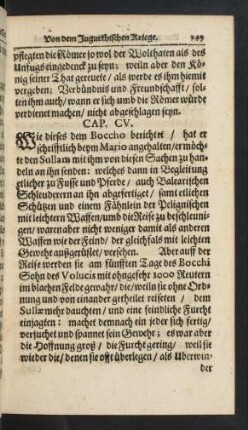 Von dem Jugurthischen Kriege. 249
pflegten die Römer so wol der Wolthaten als des
Unfugs eingedenck zu seyn; weiln aber den Kö-
nig seiner That gereuete/ als werde es ihm hiemit
vergeben; Verbündnis und Freundschafft/ sol-
ten ihm auch/ wann er sich umb die Römer würde
verdienet machen/ nicht abgeschlagen seyn.
CAP. CV.
Wie dieses dem Boccho berichtet/ hat er
schrifftlich beym Mario angehalten/ er möch-
te den Sullam mit ihm von diesen Sachen zu han-
deln an ihn senden: welches dann in Begleitung
etlicher zu Fusse und Pferde/ auch Balearischen
Schleuderern an ihn abgefertiget/ samt etlichen
Schützen und einem Fähnlein der Pelignischen
mit leichtern Waffen/ umb die Reise zu beschleuni-
gen/ waren aber nicht weniger damit als anderen
Waffen wie der Feind/ der gleichfals mit leichtem
Gewehr außgerüstet/ versehen. Aber auff der
Reise werden sie am fünfften Tage des Bocchi
Sohn des Volucis mit ohngefehr 1000 Reutern
im blachen Felde gewahr/ die/ weiln sie ohne Ord-
nung und von einander getheilet reiseten/ dem
Sullæ mehr dauchten/ und eine feindliche Furcht
einjagten: machet demnach ein jeder sich fertig/
versuchet und spannet sein Gewehr; es war aber
die Hoffnung groß/ die Furcht gering/ weil sie
wieder die/ denen sie offt überlegen/ als Uberwin-
der